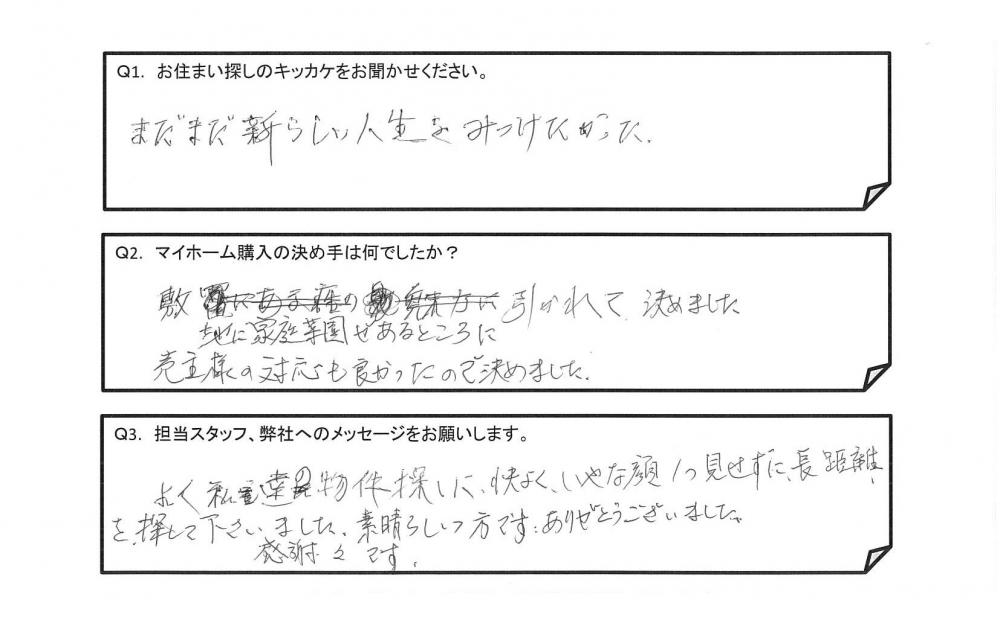 Q1. お住まい探しのキッカケをお聞かせください。
まだまだ新らしい人生をみつけたかった.
Q2. マイホーム購入の決め手は何でしたか？
敷 引かれて 決めました
地に家庭菜園があるところに
売主様の対応も良かったので決めました.
Q3. 担当スタッフ、弊社へのメッセージをお願いします。
よく私達の物件探しに、快よく、いやな顔1つ見せずに、長距離
を、探して下さいました、素晴らしい方です。ありがとうございました。
感謝々です.